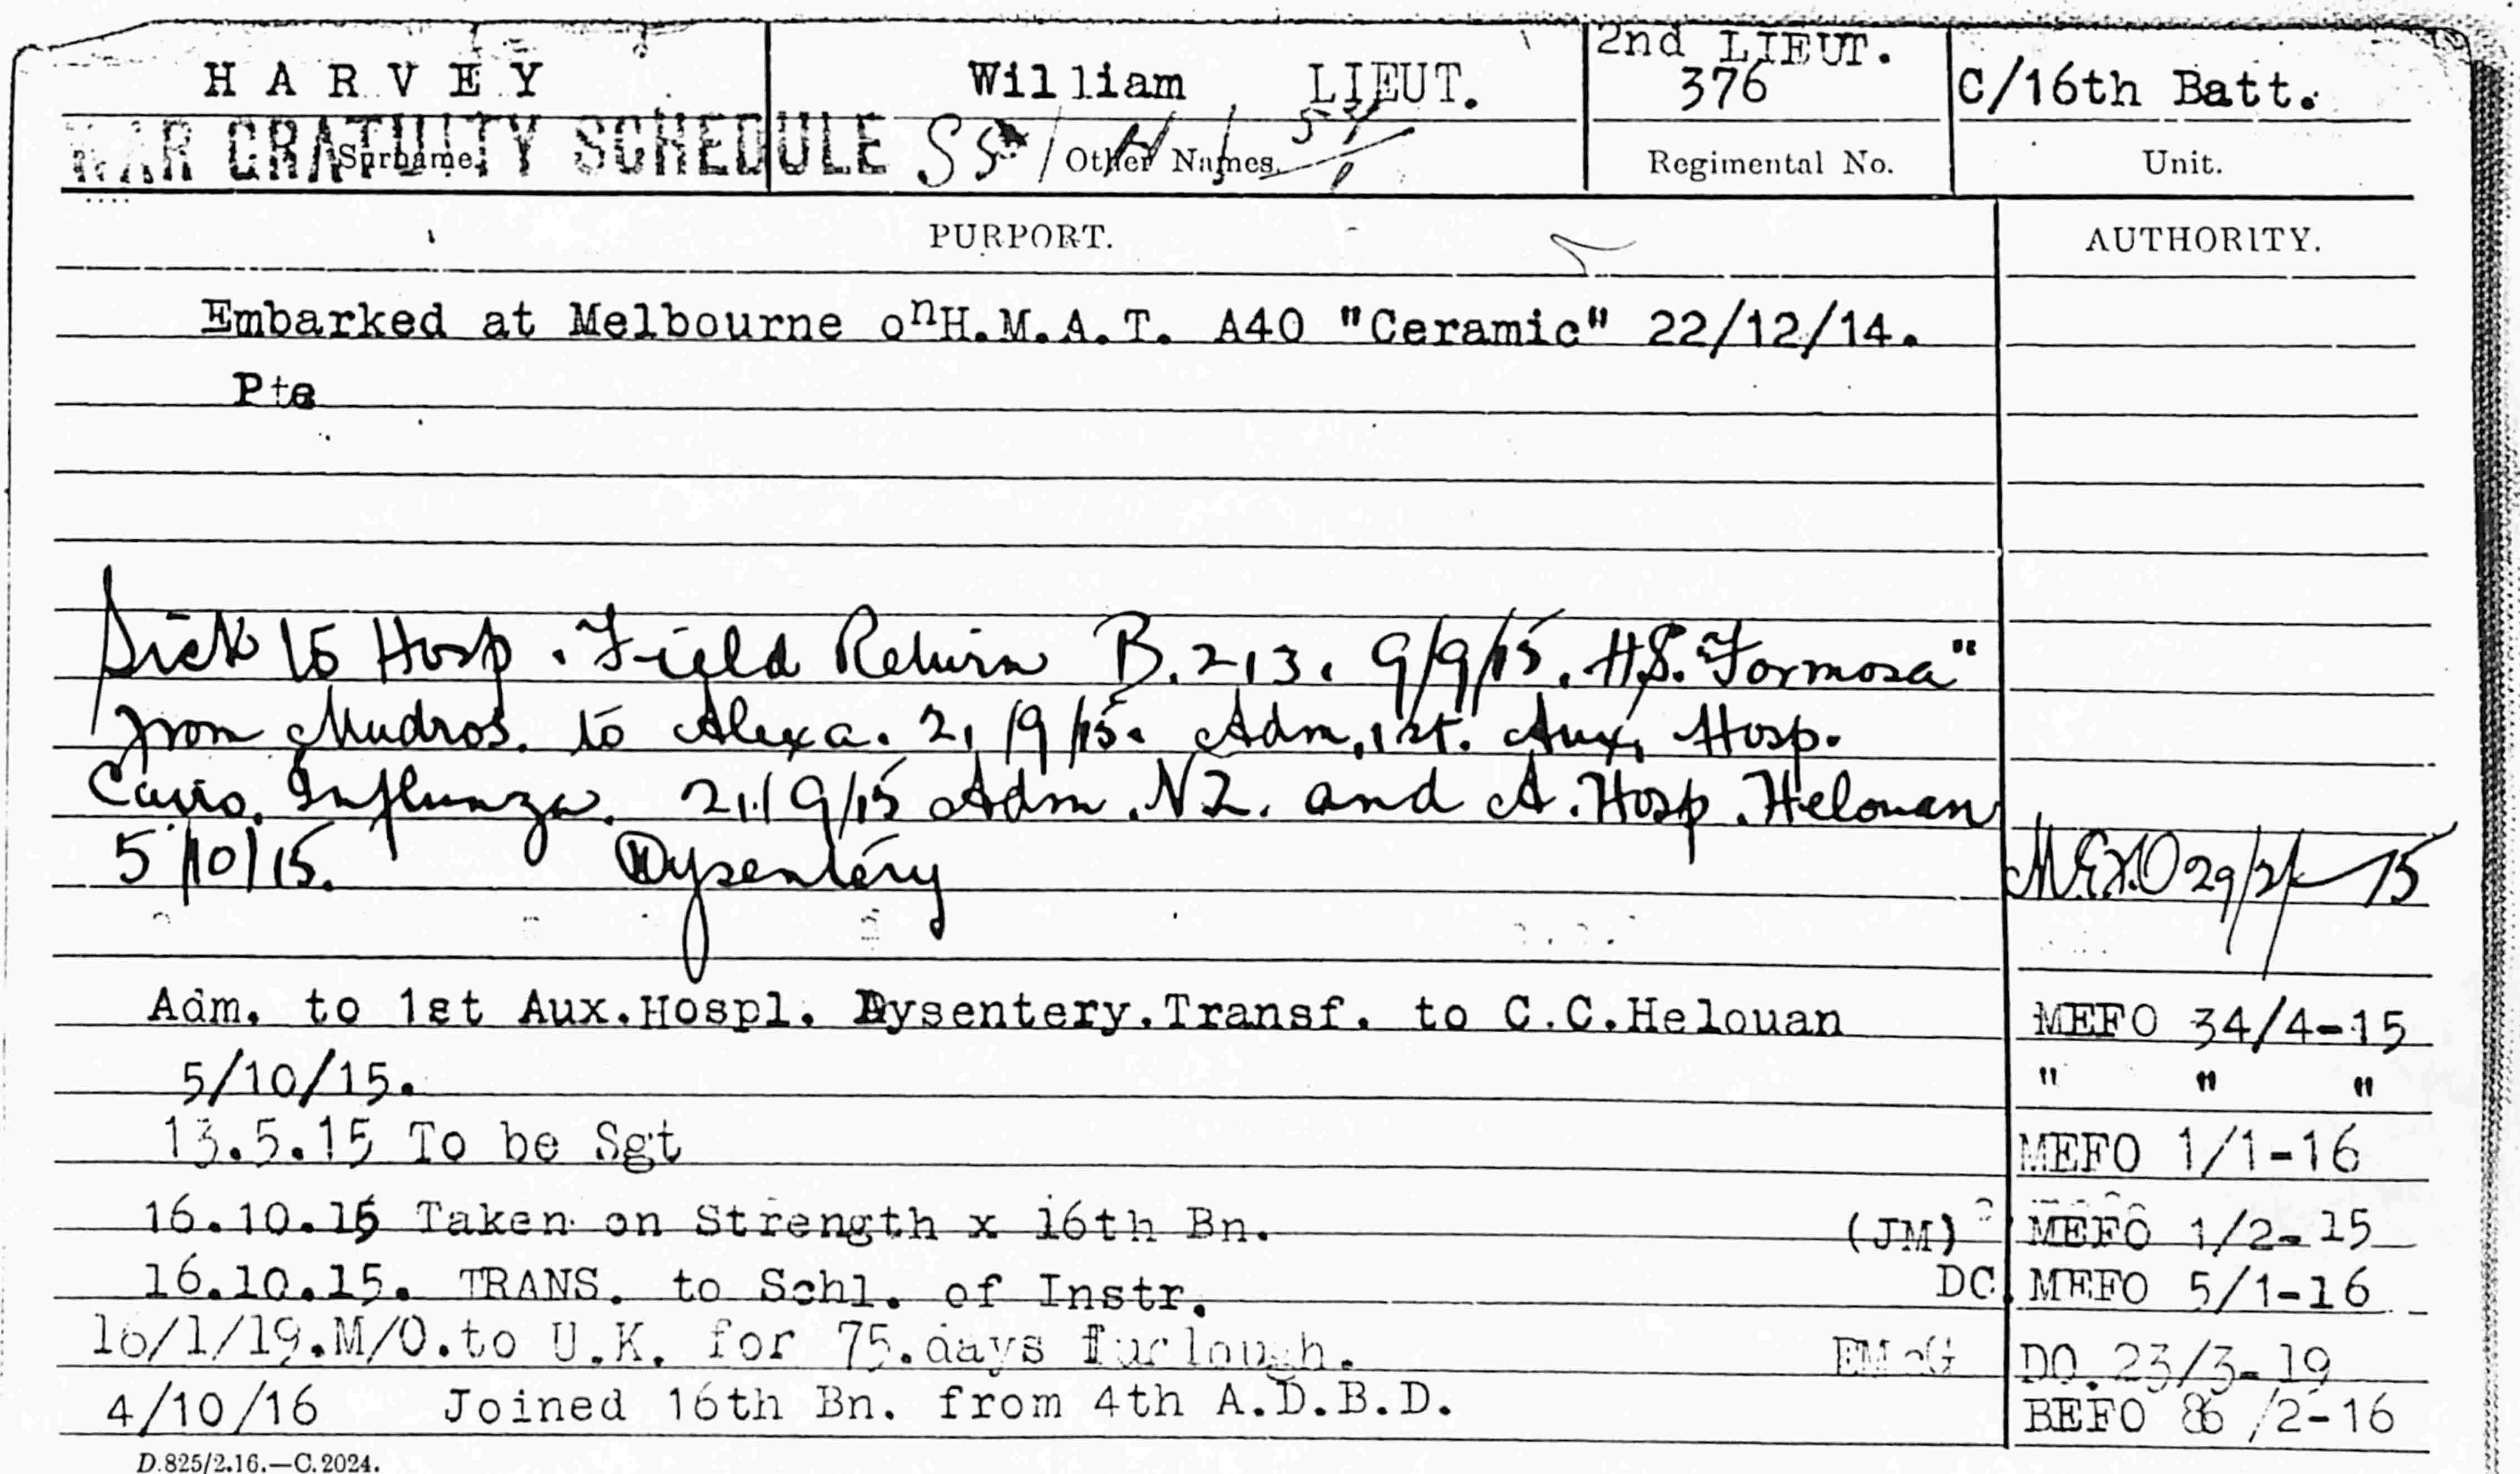 2nd LIEUT.
H A R V E Y William LIEUT. 376 C/16th Batt.
WAR GRATUITY SCHEDULE
Surname. Other Names. Regimental No. Unit.
PURPORT. AUTHORITY.
Embarked at Melbourne on H.M.A.T. A40 "Ceramic" 22/12/14.
Pte
Sick to Hosp. Field Return B.213. 9/9/15. H.S. "Formosa"
from Mudros. to Alexa. 21/9/15. Adm. 1st. Aux. Hosp.
Cairo. Influenza. 21/9/15 Adm. N.Z. and A. Hosp. Helouan
5/10/15. Dysentery 29/2/-15
Adm. to 1st Aux.Hospl. Dysentery.Transf. to C.C.Helouan MEFO 34/4-15
5/10/15. " " "
13.5.15 To be Sgt MEFO 1/1-16
16.10.15 Taken on Strength x 16th Bn. (JM) MEFO 1/2-15
16.10.15. TRANS. to Schl. of Instr. DC. MEFO 5/1-16
16/1/19.M/O.to U.K. for 75.days furlough. EMcG DO.23/3-19
4/10/16 Joined 16th Bn. from 4th A.D.B.D. BEFO 86/2-16
D.825/2.16.—C.2024.